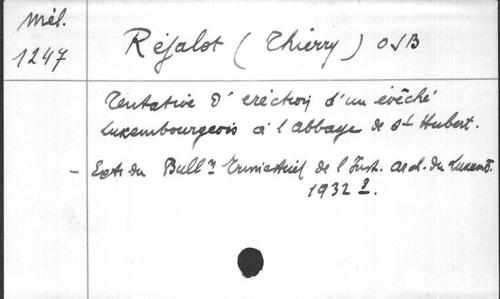 Mél.
1247
Réjalot (Thierry) OSB
Tentative d'érection d'un évêché
luxembourgeois à l'abbaye de St Hubert.
- Extr du Bull n Trimestriel de l'Inst. arch. du Luxemb.
1932